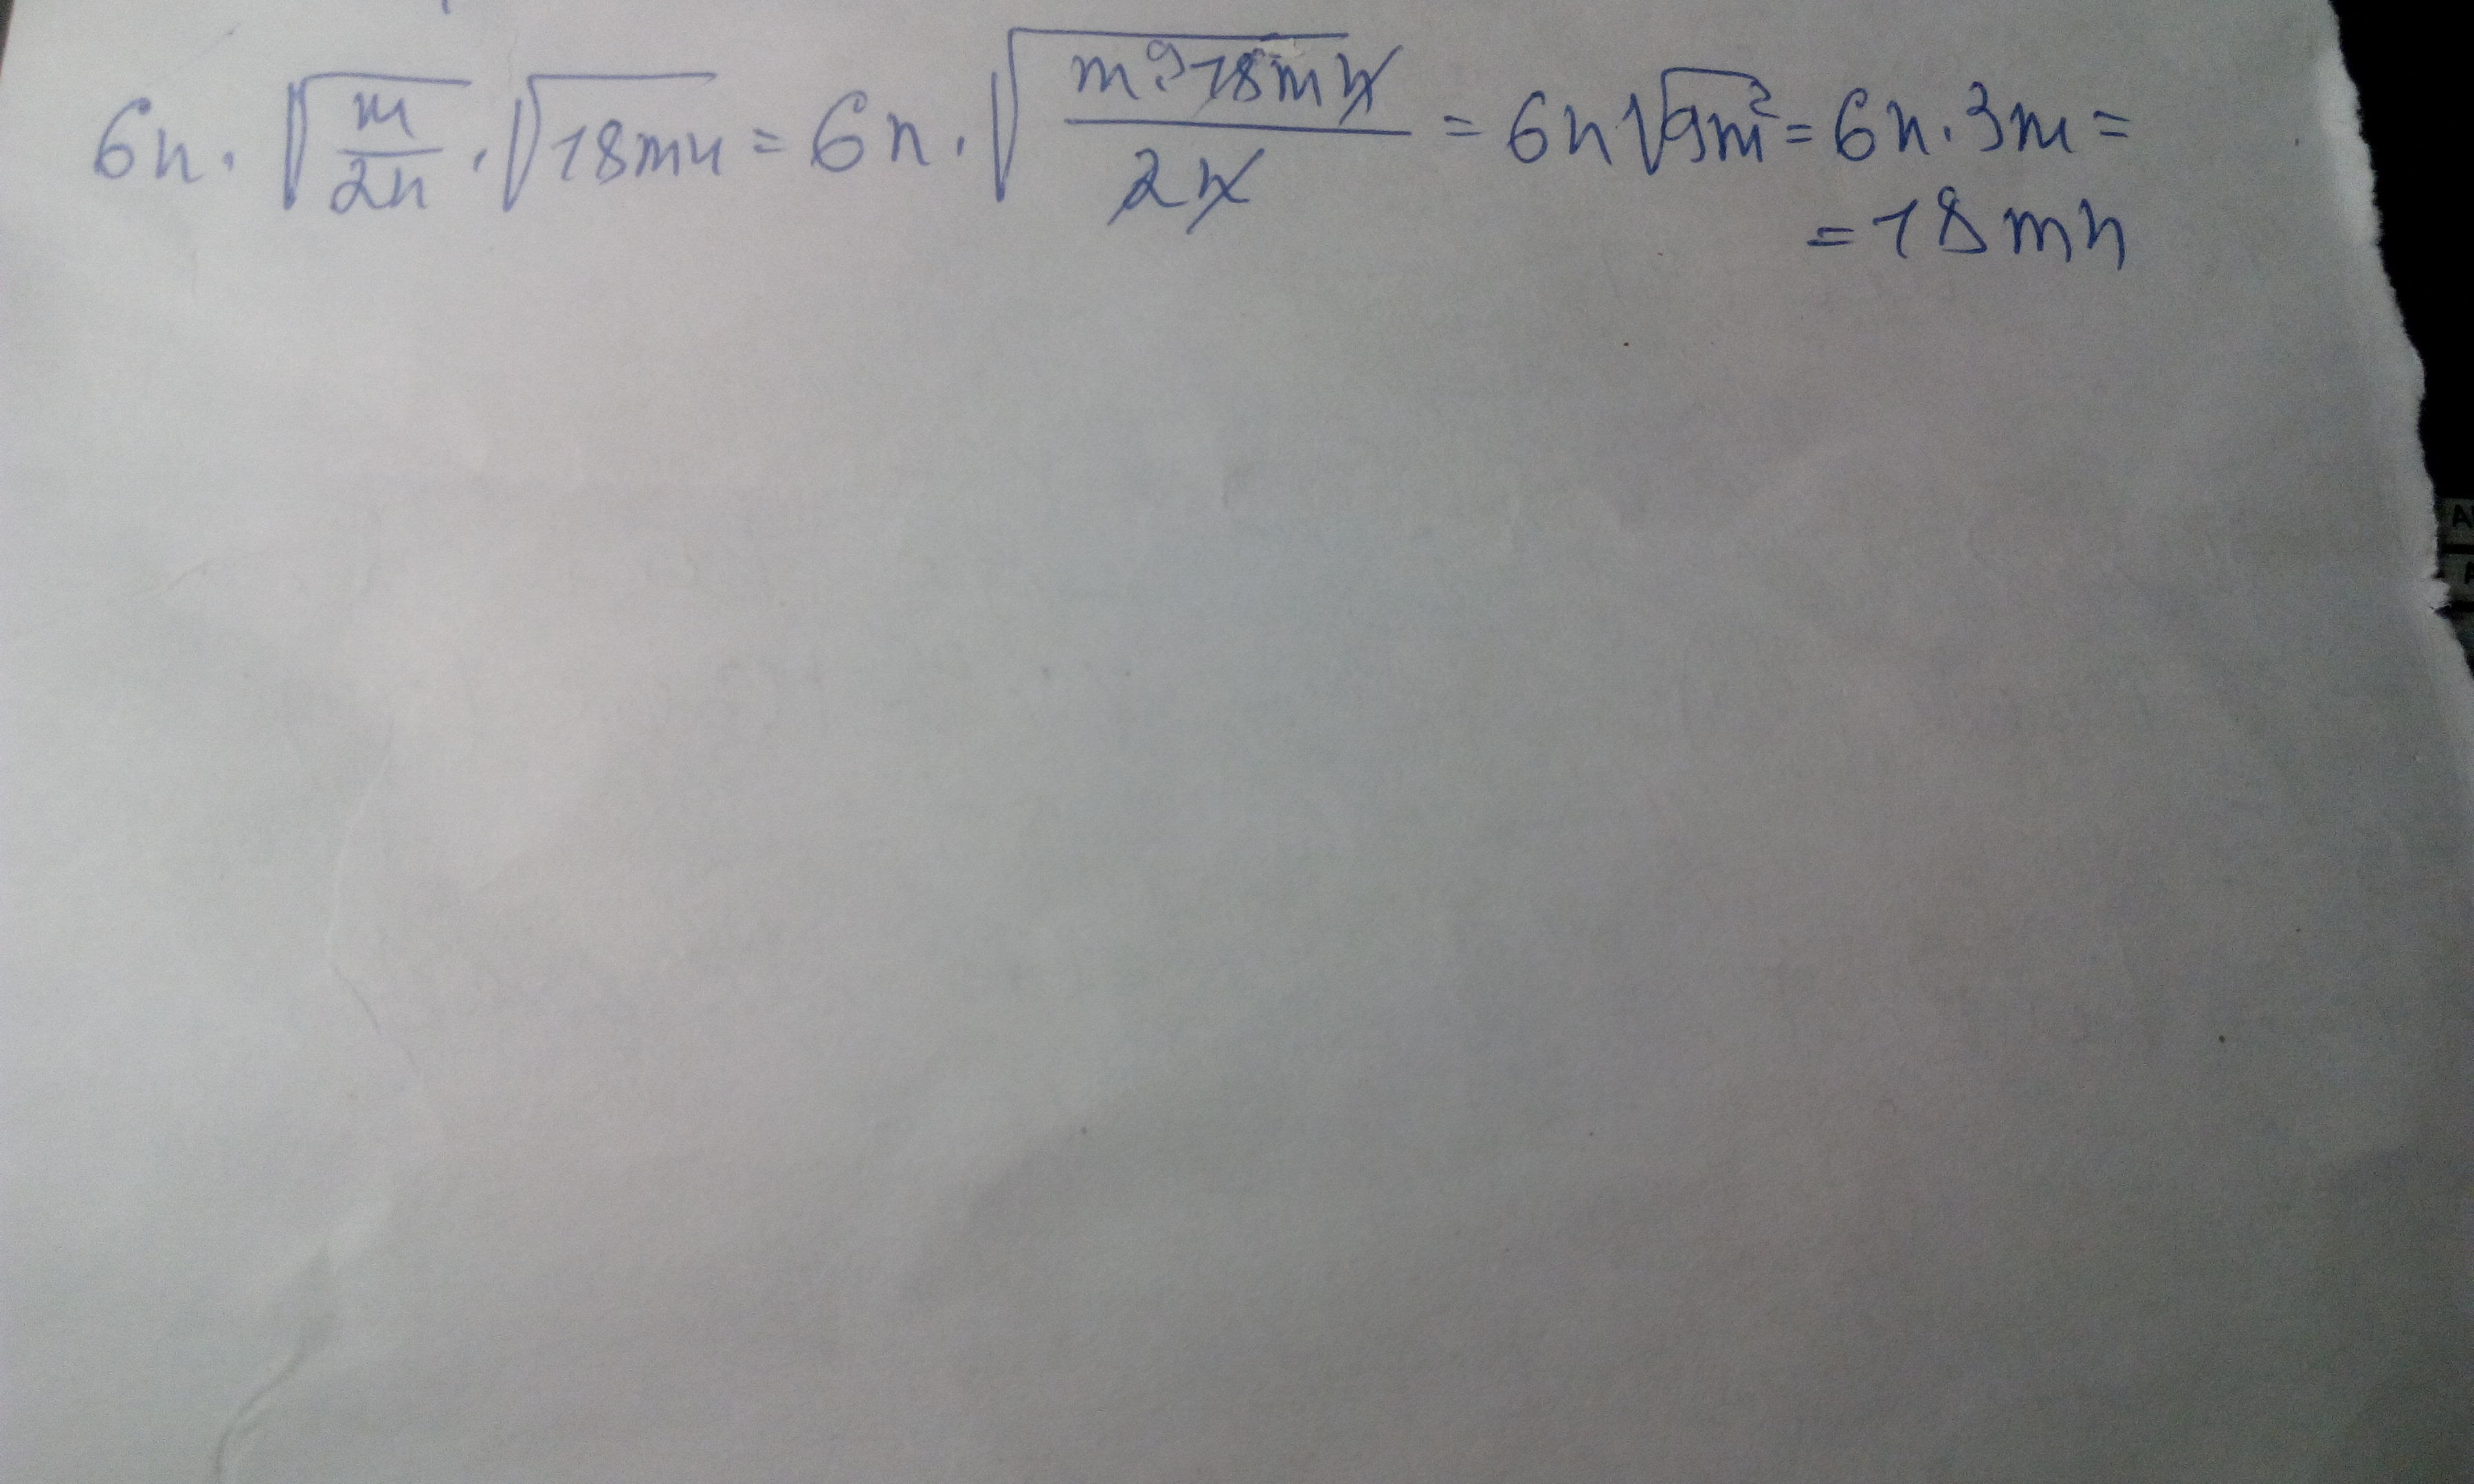 6n · √(m/2n) · √(18mn) = 6n · √(m · 18mn / 2n) = 6n √(9m²) = 6n · 3m =
= 18mn